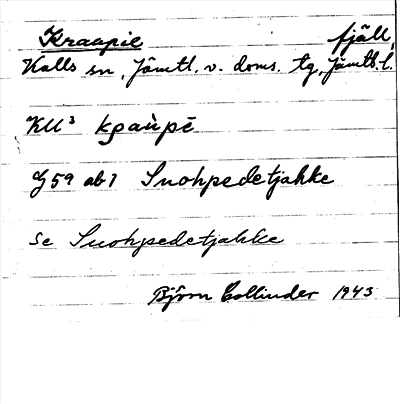 Kraapie fjäll,
Kalls sn, Jämtl. v. doms. tg, Jämtl. l.
KU³ kραὰpē
J 59 ab 1 Snohpedetjahke
se Snohpedetjahke
Björn Collinder 1943